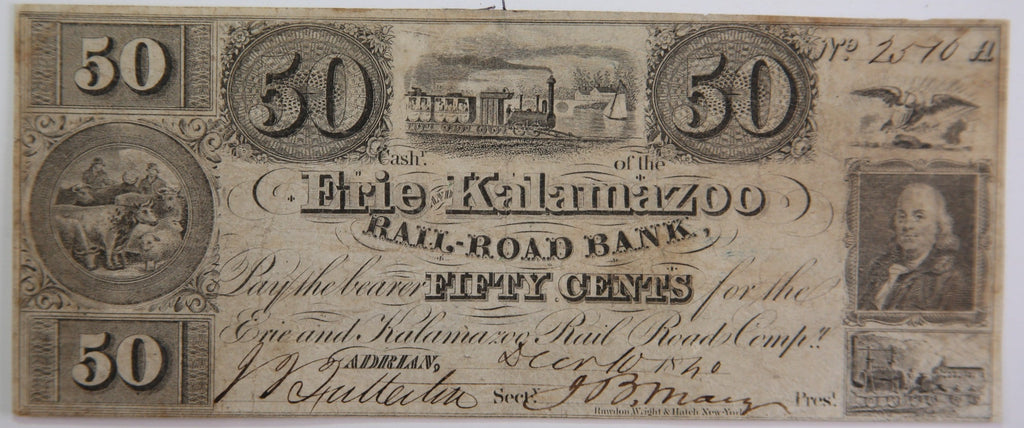 50 50 50 No 2570 A
Cash.r of the
Erie AND Kalamazoo
RAIL-ROAD BANK,
Pay the bearer FIFTY CENTS for the
Erie and Kalamazoo Rail Road Comp.y
50 ADRIAN, Decr 10 1840
Secy. Pres.t
Rawdon Wright & Hatch New-York